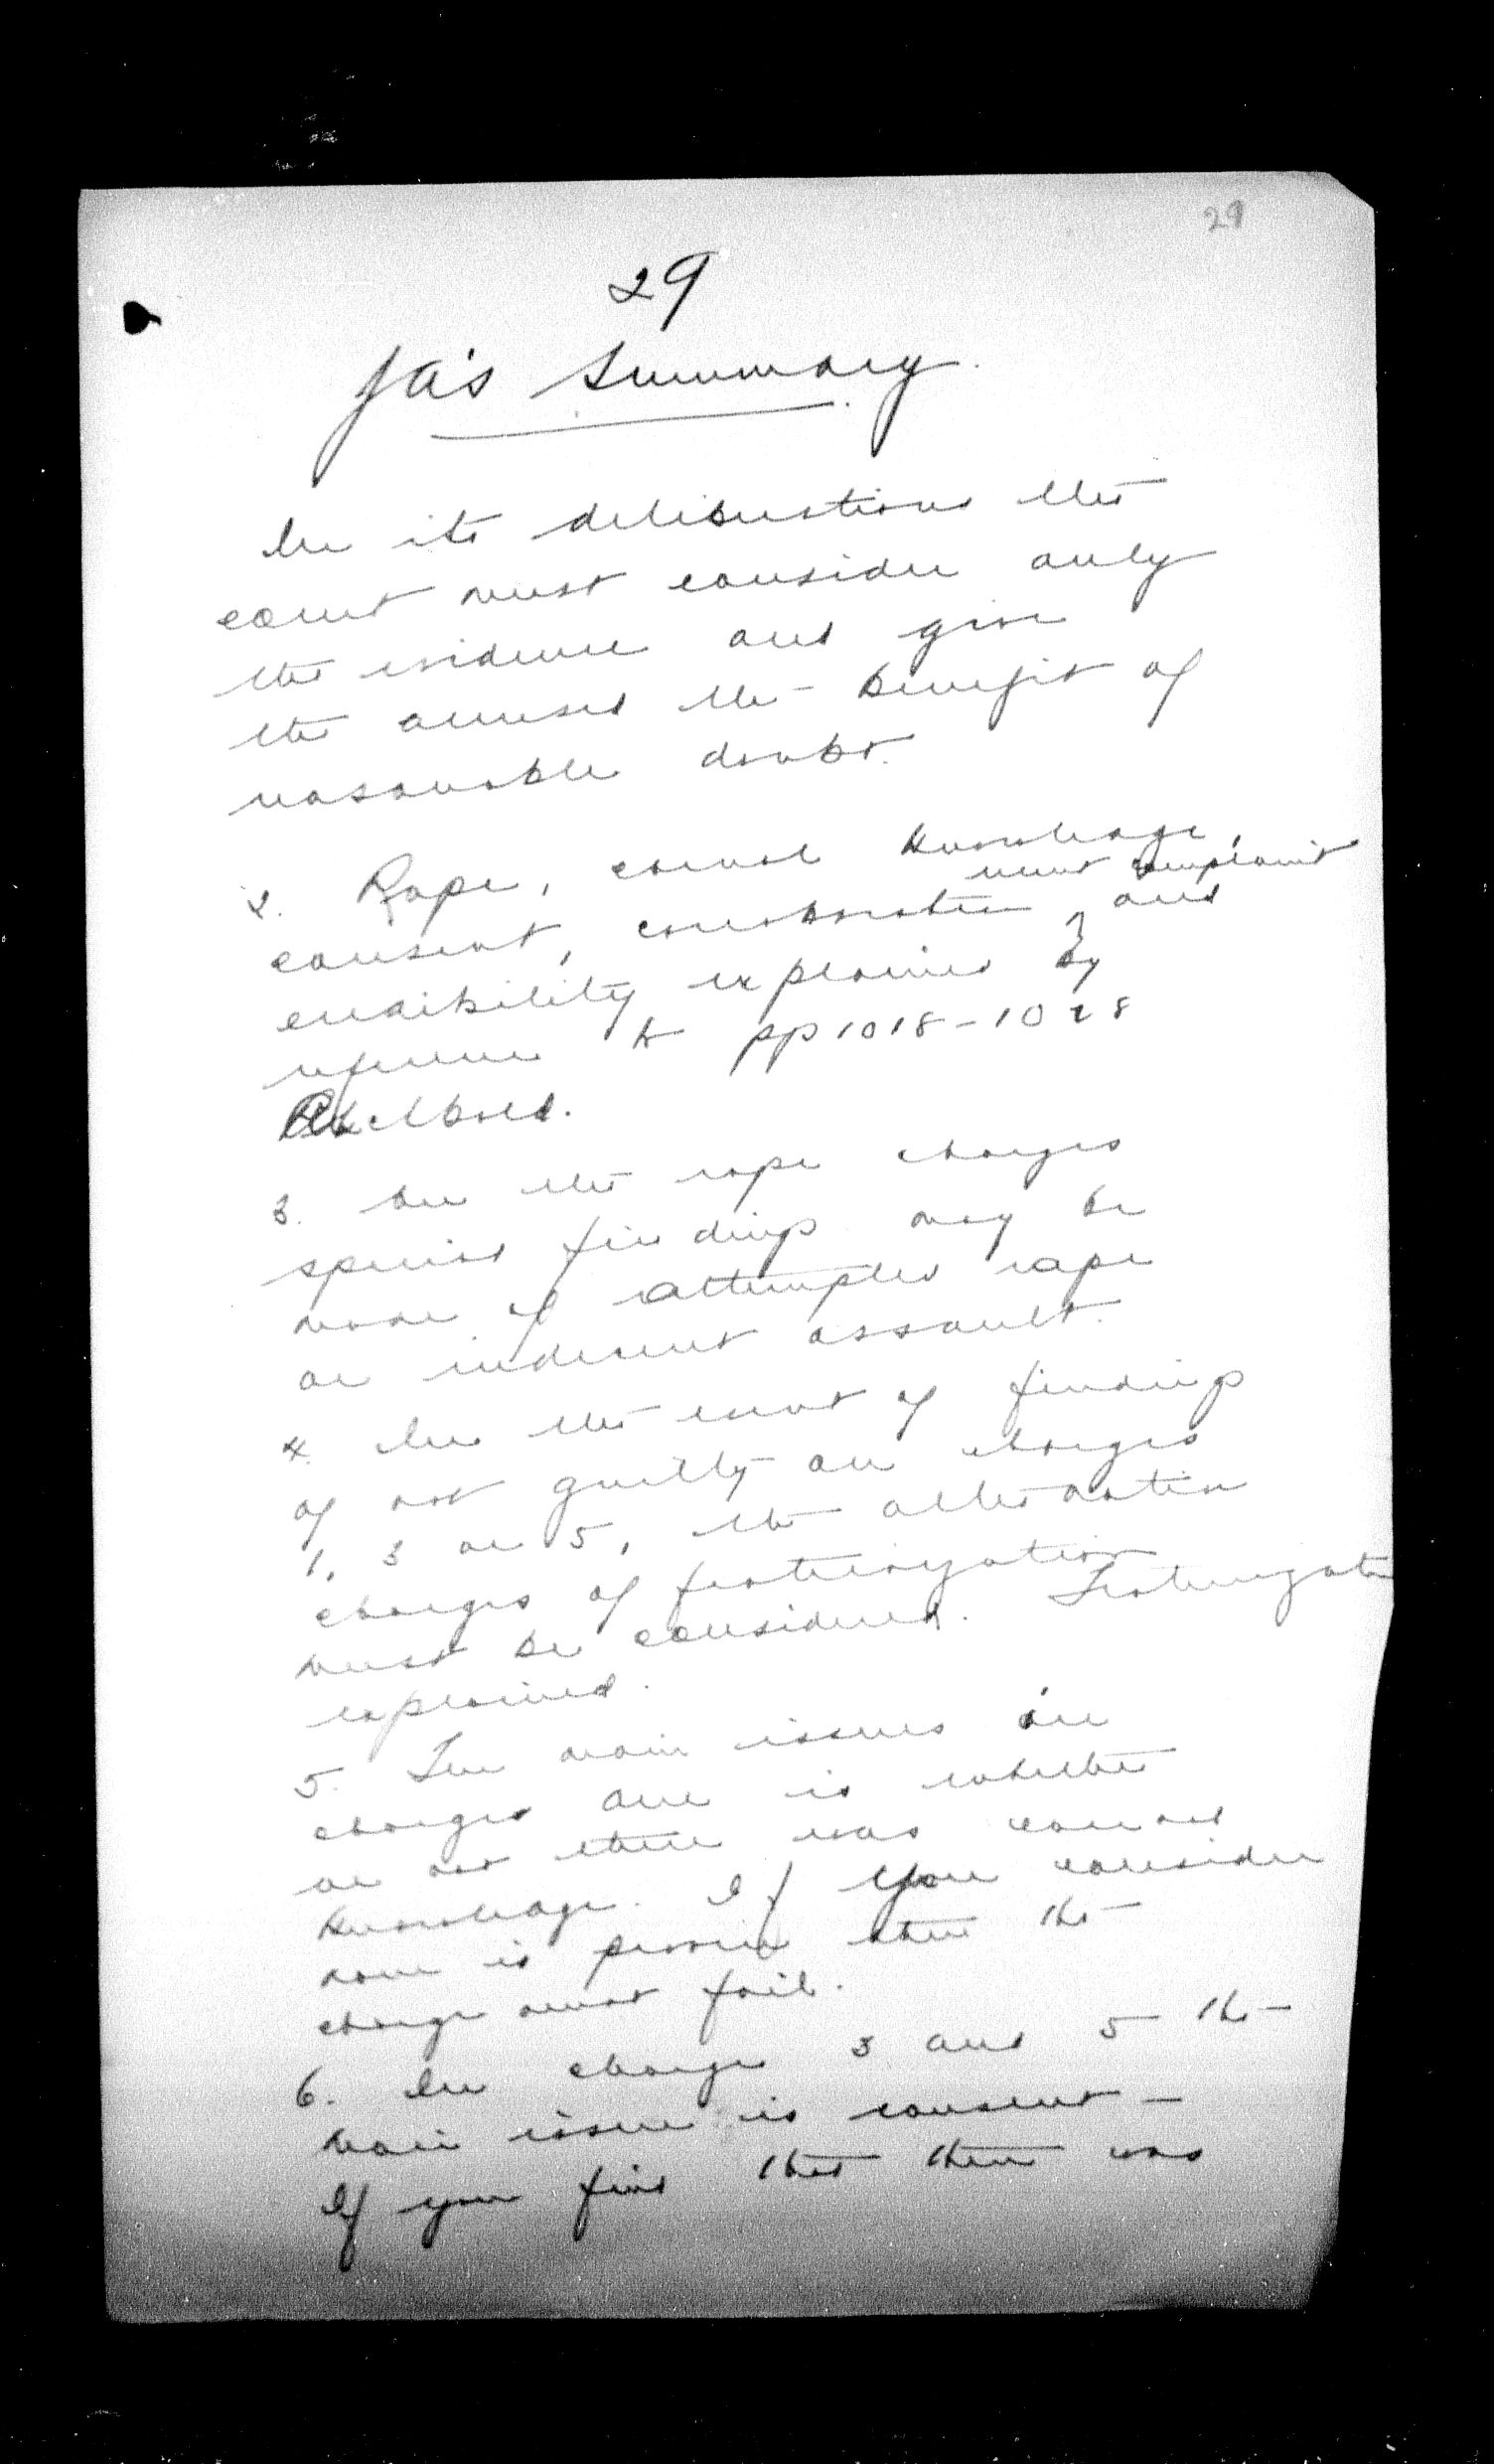 29
29
JA's Summary.
In its deliberations the
court must consider only
the evidence and give
the accused the benefit of
reasonable doubt.
2. Rape, carnal knowledge,
recent complaint
consent, corroboration and
credibility explained by
reference to pp 1018-1028
Archbold.
3. On the rape charges
special findings may be
made of attempted rape
or indecent assault.
4. In the event of findings
of not guilty on charges
1, 3 or 5, the alternative
charges of fraternization
must be considered. Fraternization
explained.
5. The main issues on
charges one is whether
or not there was carnal
knowledge. If you consider
none is proven then the
charge must fail.
6. In charge 3 and 5 the
main issue is consent -
If you find that there was